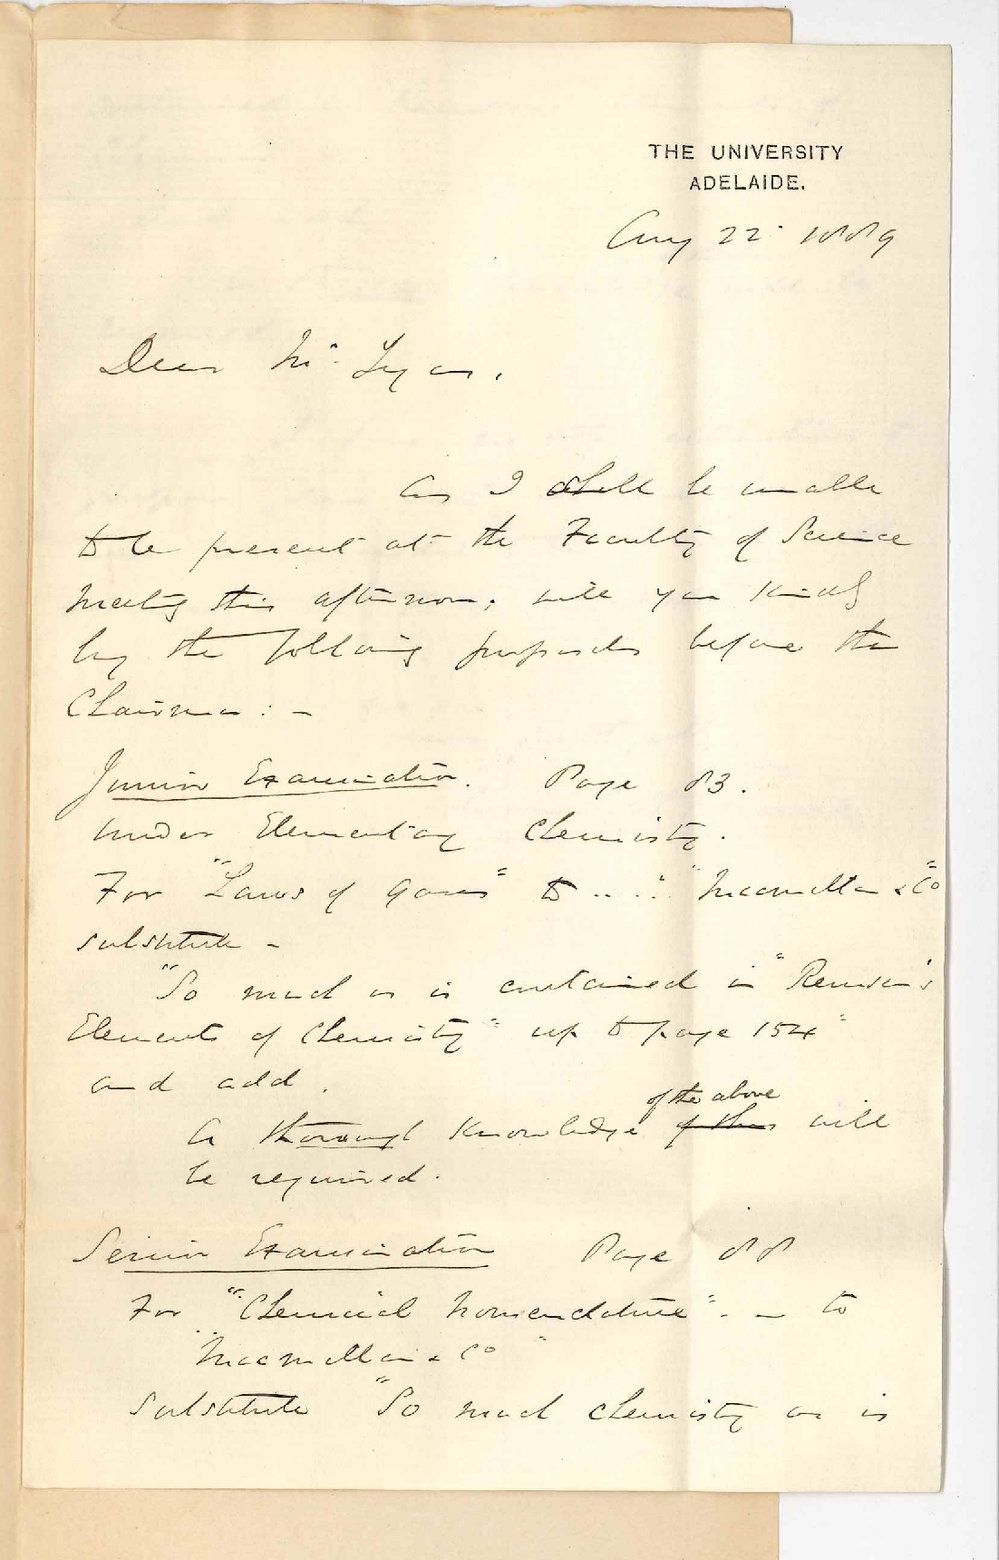 THE UNIVERSITY
ADELAIDE.
Aug 22 1889
Dear Mr Tyas,
As I shall be unable
to be present at the Faculty of Science
meeting this afternoon, will you kindly
lay the following proposals before the
Chairman : –
Junior Examination. Page 83.
under Elementary Chemistry.
For "Laws of Gases" to .... "Macmillan & Co"
substitute –
"So much as is contained in "Remsen's
Elements of Chemistry" up to page 154"
and add.
of the above
A thorough knowledge of this will
be required.
Senior Examination Page 88
For "Chemical Nomenclature" - – to
"Macmillan & Co"
substitute "So much chemistry as is